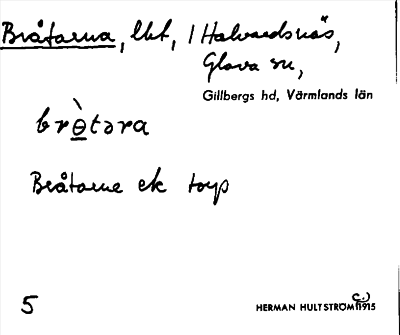 Bråtarna, lht, / Halvardsnäs,
Glava sn,
Gillbergs hd, Värmlands län
brə̀təra
Bråtarne ek torp
5
HERMAN HULTSTRÖM 1915